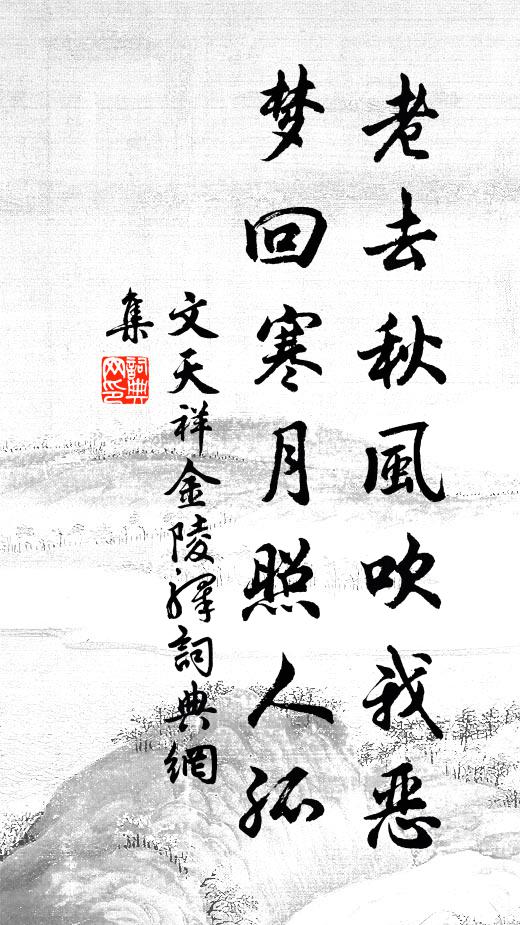 老去秋風吹我惡
梦回寒月照人孤
文天祥金陵驛詞典網
集
詞典
网印